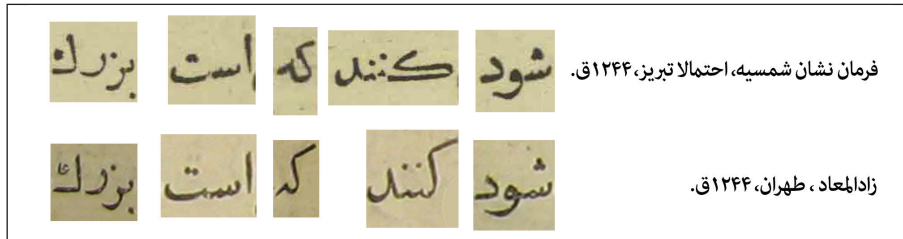 فرمان نشان شمسیه، احتمالا تبریز، ۱۲۴۴ق. شود کنند که است بزرك
زادالمعاد ، طهران، ۱۲۴۴ق. شود کنند که است بزرك